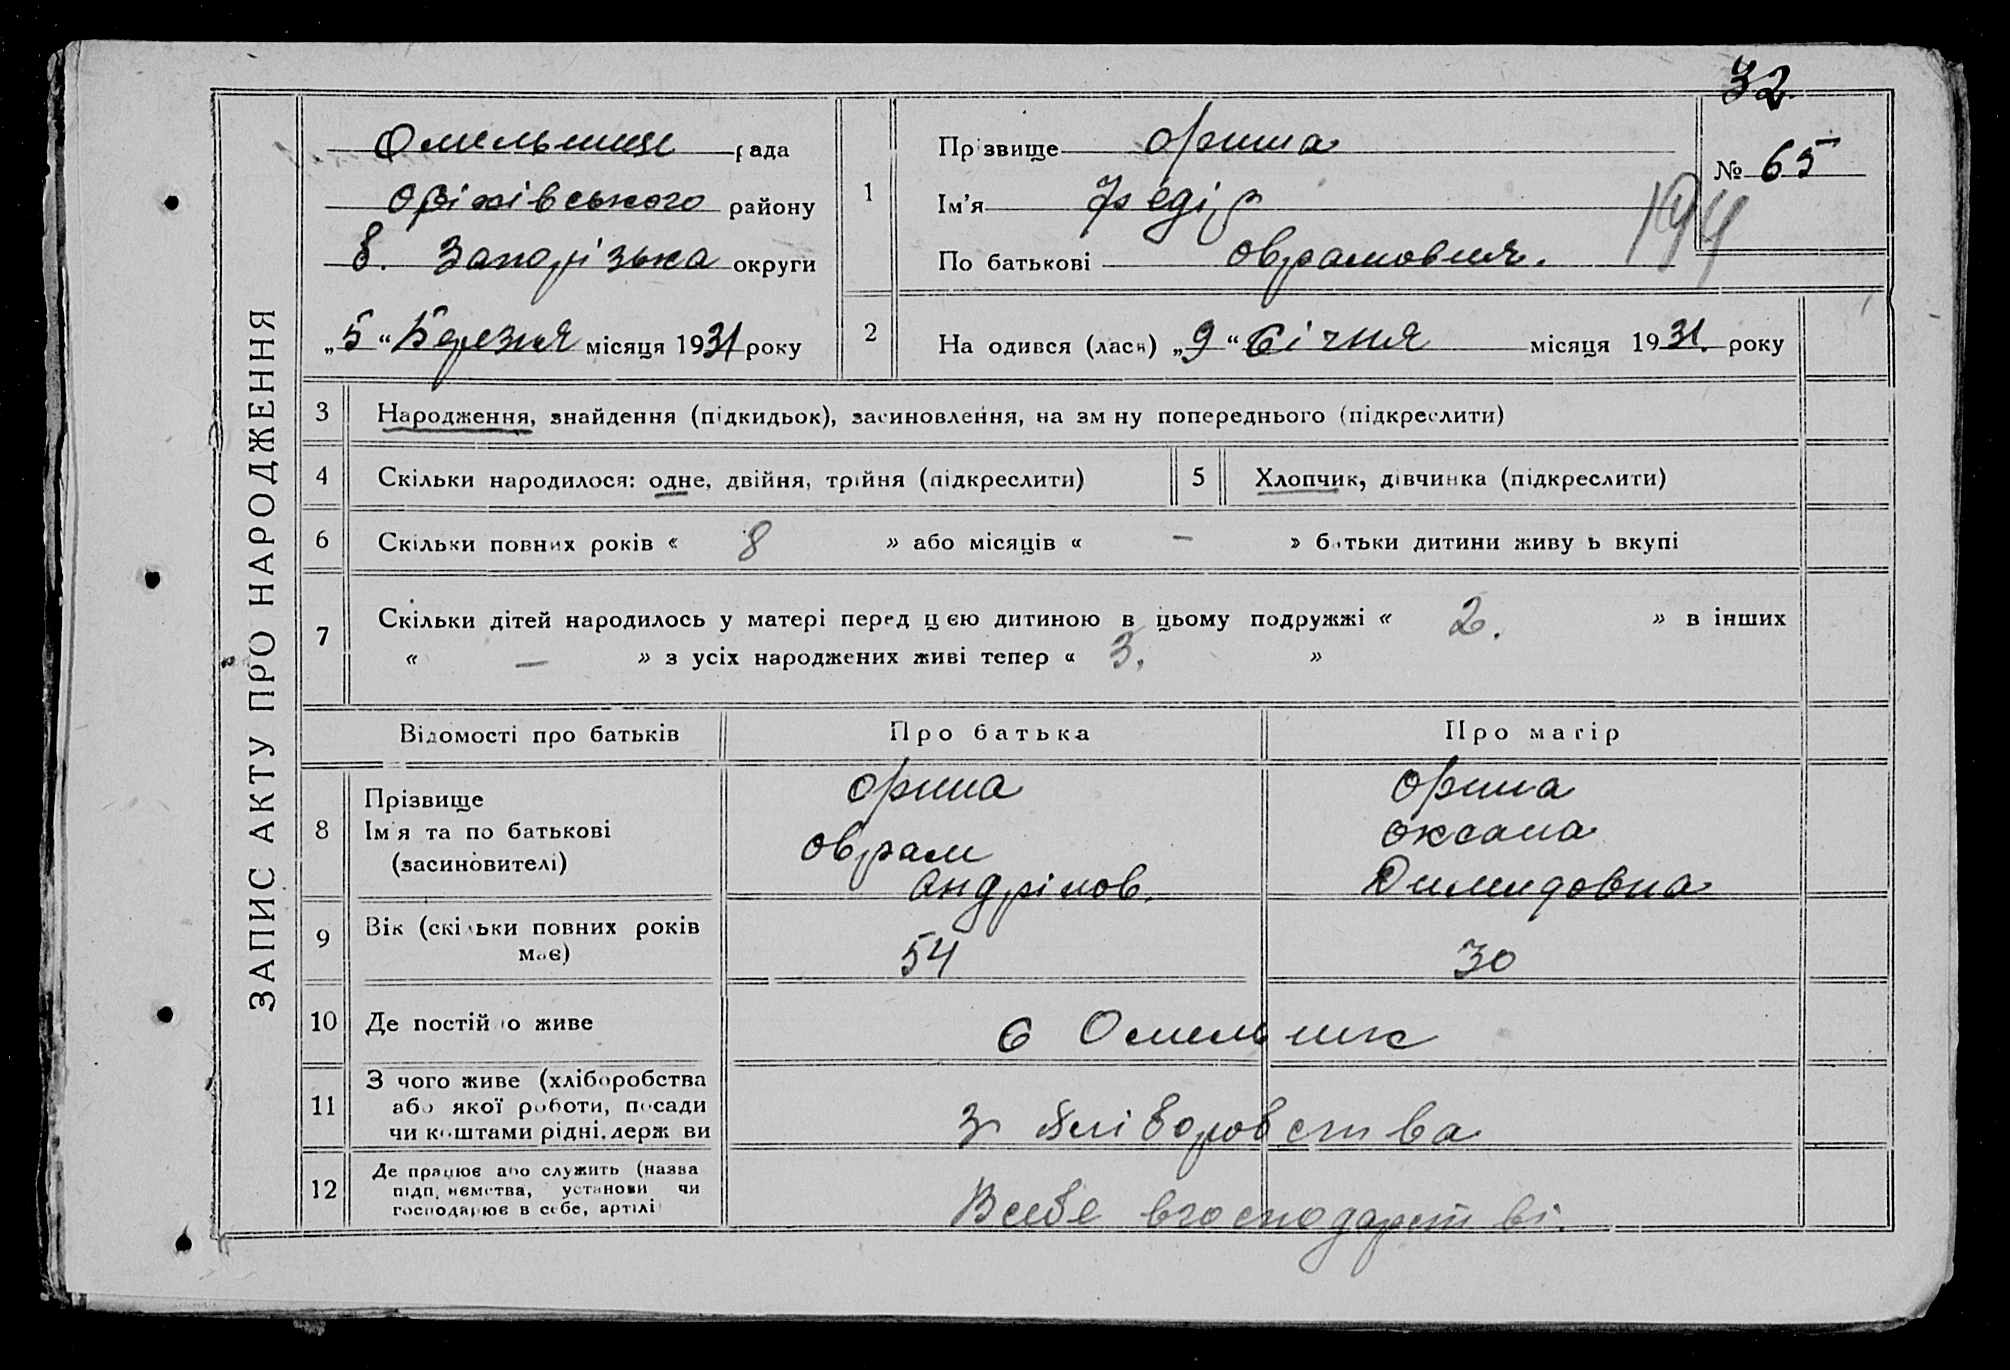 32
Омельниц рада
Оріхівського району
б. Запорізька округи
„5“ Березня місяця 1931 року
ЗАПИС АКТУ ПРО НАРОДЖЕННЯ
1
Пр звище Орина
Ім'я Федір
По батькові Оврамович.
№ 65
194
2
На одився (лася) „9“ Січня місяця 1931. року
3 Народження, знайдення (підкидьок), засиновлення, на зм ну попереднього (підкреслити)
4 Скільки народилося: одне, двійня, трійня (підкреслити)
5 Хлопчик, дівчинка (підкреслити)
6 Скільки повних років « 8 » або місяців « – » б тьки дитини живу ь вкупі
7 Скільки дітей народилось у матері перед цією дитиною в цьому подружжі « 2. » в інших
« – » з усіх народжених живі тепер « 3. »
Відомості про батьків Про батька Про матір
8 Прізвище
Ім'я та по батькові
(засиновителі)
Орина
Оврам
Андріјов.
Орина
Оксана
Демидовна
9 Вік (скільки повних років
має)
54
30
10 Де постій о живе
с Омельник
11 З чого живе (хліборобства
або якої роботи, посади
чи коштами рідні, держ ви
З хліборобства
12 Де працює або служить (назва
підп. ємства, установи чи
господарює в себе, артілі
В себе в господарстві.